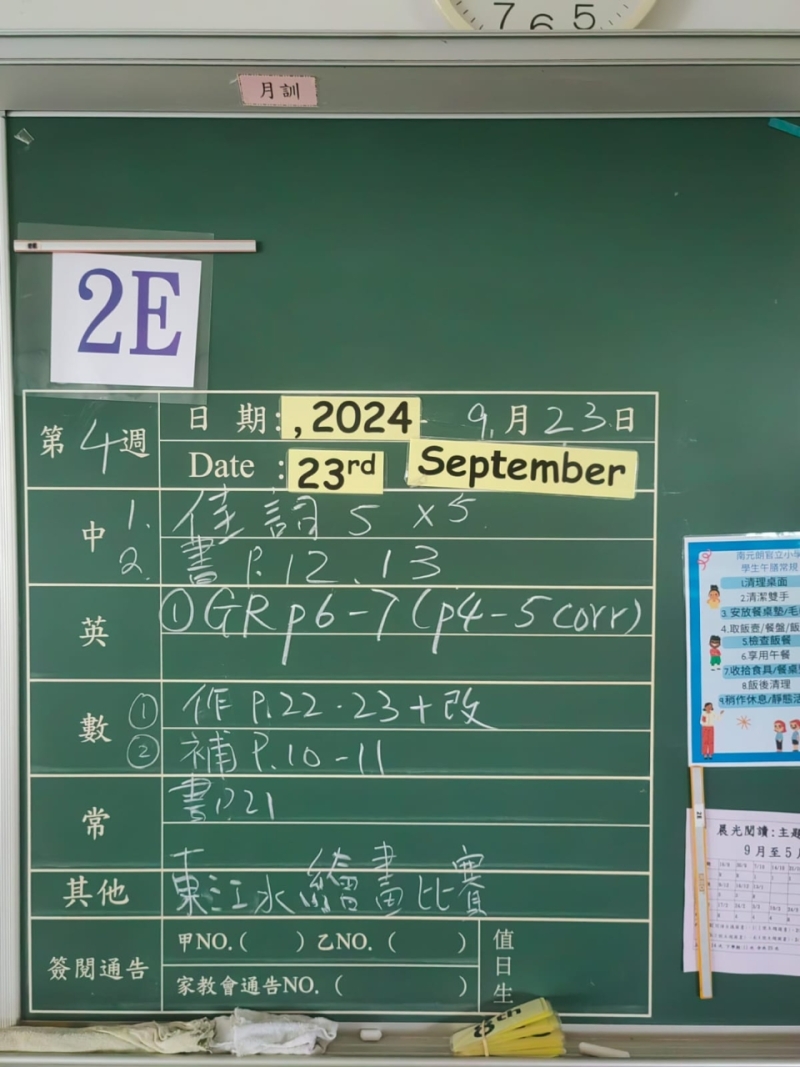 7 6 5
月訓
2E
第4週
日 期: , 2024 9月23日
Date : 23rd September
中 1. 佳詞 5 x5
2. 書P.12、13
英 ①GR p6-7 (p4-5 corr)
數 ① 作P.22.23+改
② 補P.10-11
常 書P.21
其他 東江水繪畫比賽
簽閱通告 甲NO.( ) 乙NO.( )
家教會通告NO.( )
值日生
8th
南元朗官立小學
學生午膳常規
1.清理桌面
2.清潔雙手
3.安放餐桌墊/毛
4.取飯壺/餐盤/飯
5.檢查飯餐
6.享用午餐
7.收拾食具/餐桌
8.飯後清理
9.稍作休息/靜態活
晨光閱讀:主題
9月至5月